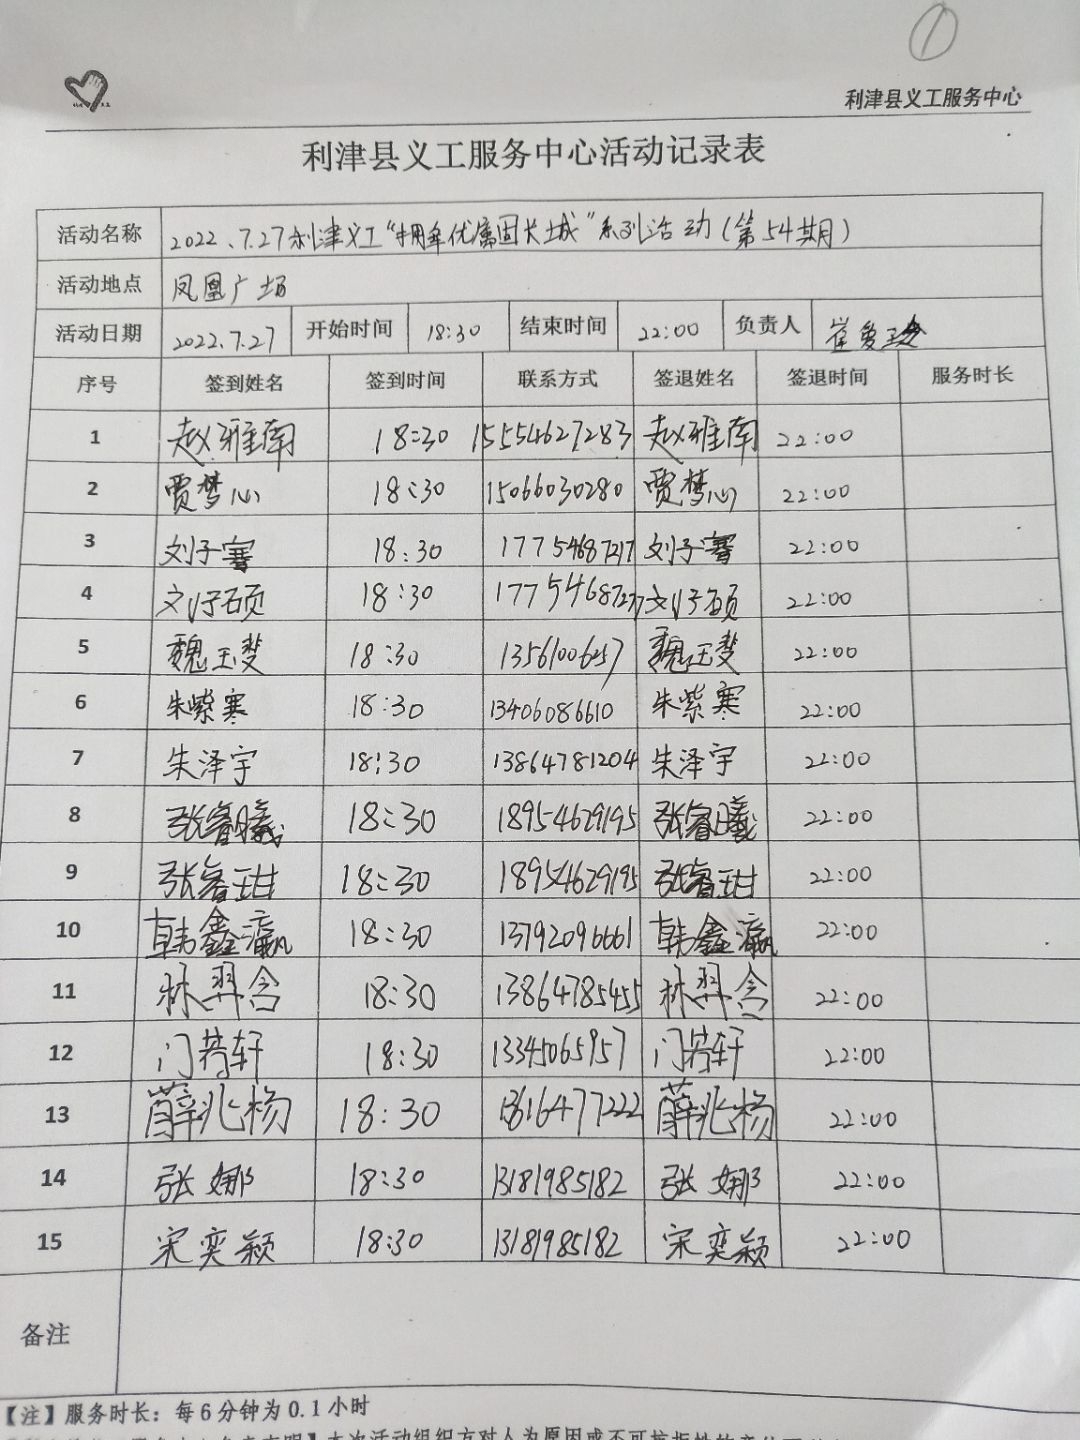 ①
利津县义工服务中心
利津县义工服务中心活动记录表
活动名称 2022.7.27利津义工“拥军优属固长城”系列活动(第54期)
活动地点 凤凰广场
活动日期 2022.7.27 开始时间 18:30 结束时间 22:00 负责人 崔爱玲
序号 签到姓名 签到时间 联系方式 签退姓名 签退时间 服务时长
1 赵雅南 18:30 15554627283 赵雅南 22:00
2 贾梦心 18:30 15066030280 贾梦心 22:00
3 刘子骞 18:30 17754687217 刘子骞 22:00
4 刘子硕 18:30 17754687217 刘子硕 22:00
5 魏玉斐 18:30 13561006257 魏玉斐 22:00
6 朱紫寒 18:30 13406086610 朱紫寒 22:00
7 朱泽宇 18:30 13864781204 朱泽宇 22:00
8 张睿曦 18:30 18954629195 张睿曦 22:00
9 张睿玵 18:30 18954629195 张睿玵 22:00
10 韩鑫瀛 18:30 13792096661 韩鑫瀛 22:00
11 林羿含 18:30 13864785455 林羿含 22:00
12 门若轩 18:30 13345065957 门若轩 22:00
13 薛兆杨 18:30 13616477222 薛兆杨 22:00
14 张娜 18:30 13181985182 张娜 22:00
15 宋奕颖 18:30 13181985182 宋奕颖 22:00
备注
【注】服务时长：每6分钟为0.1小时